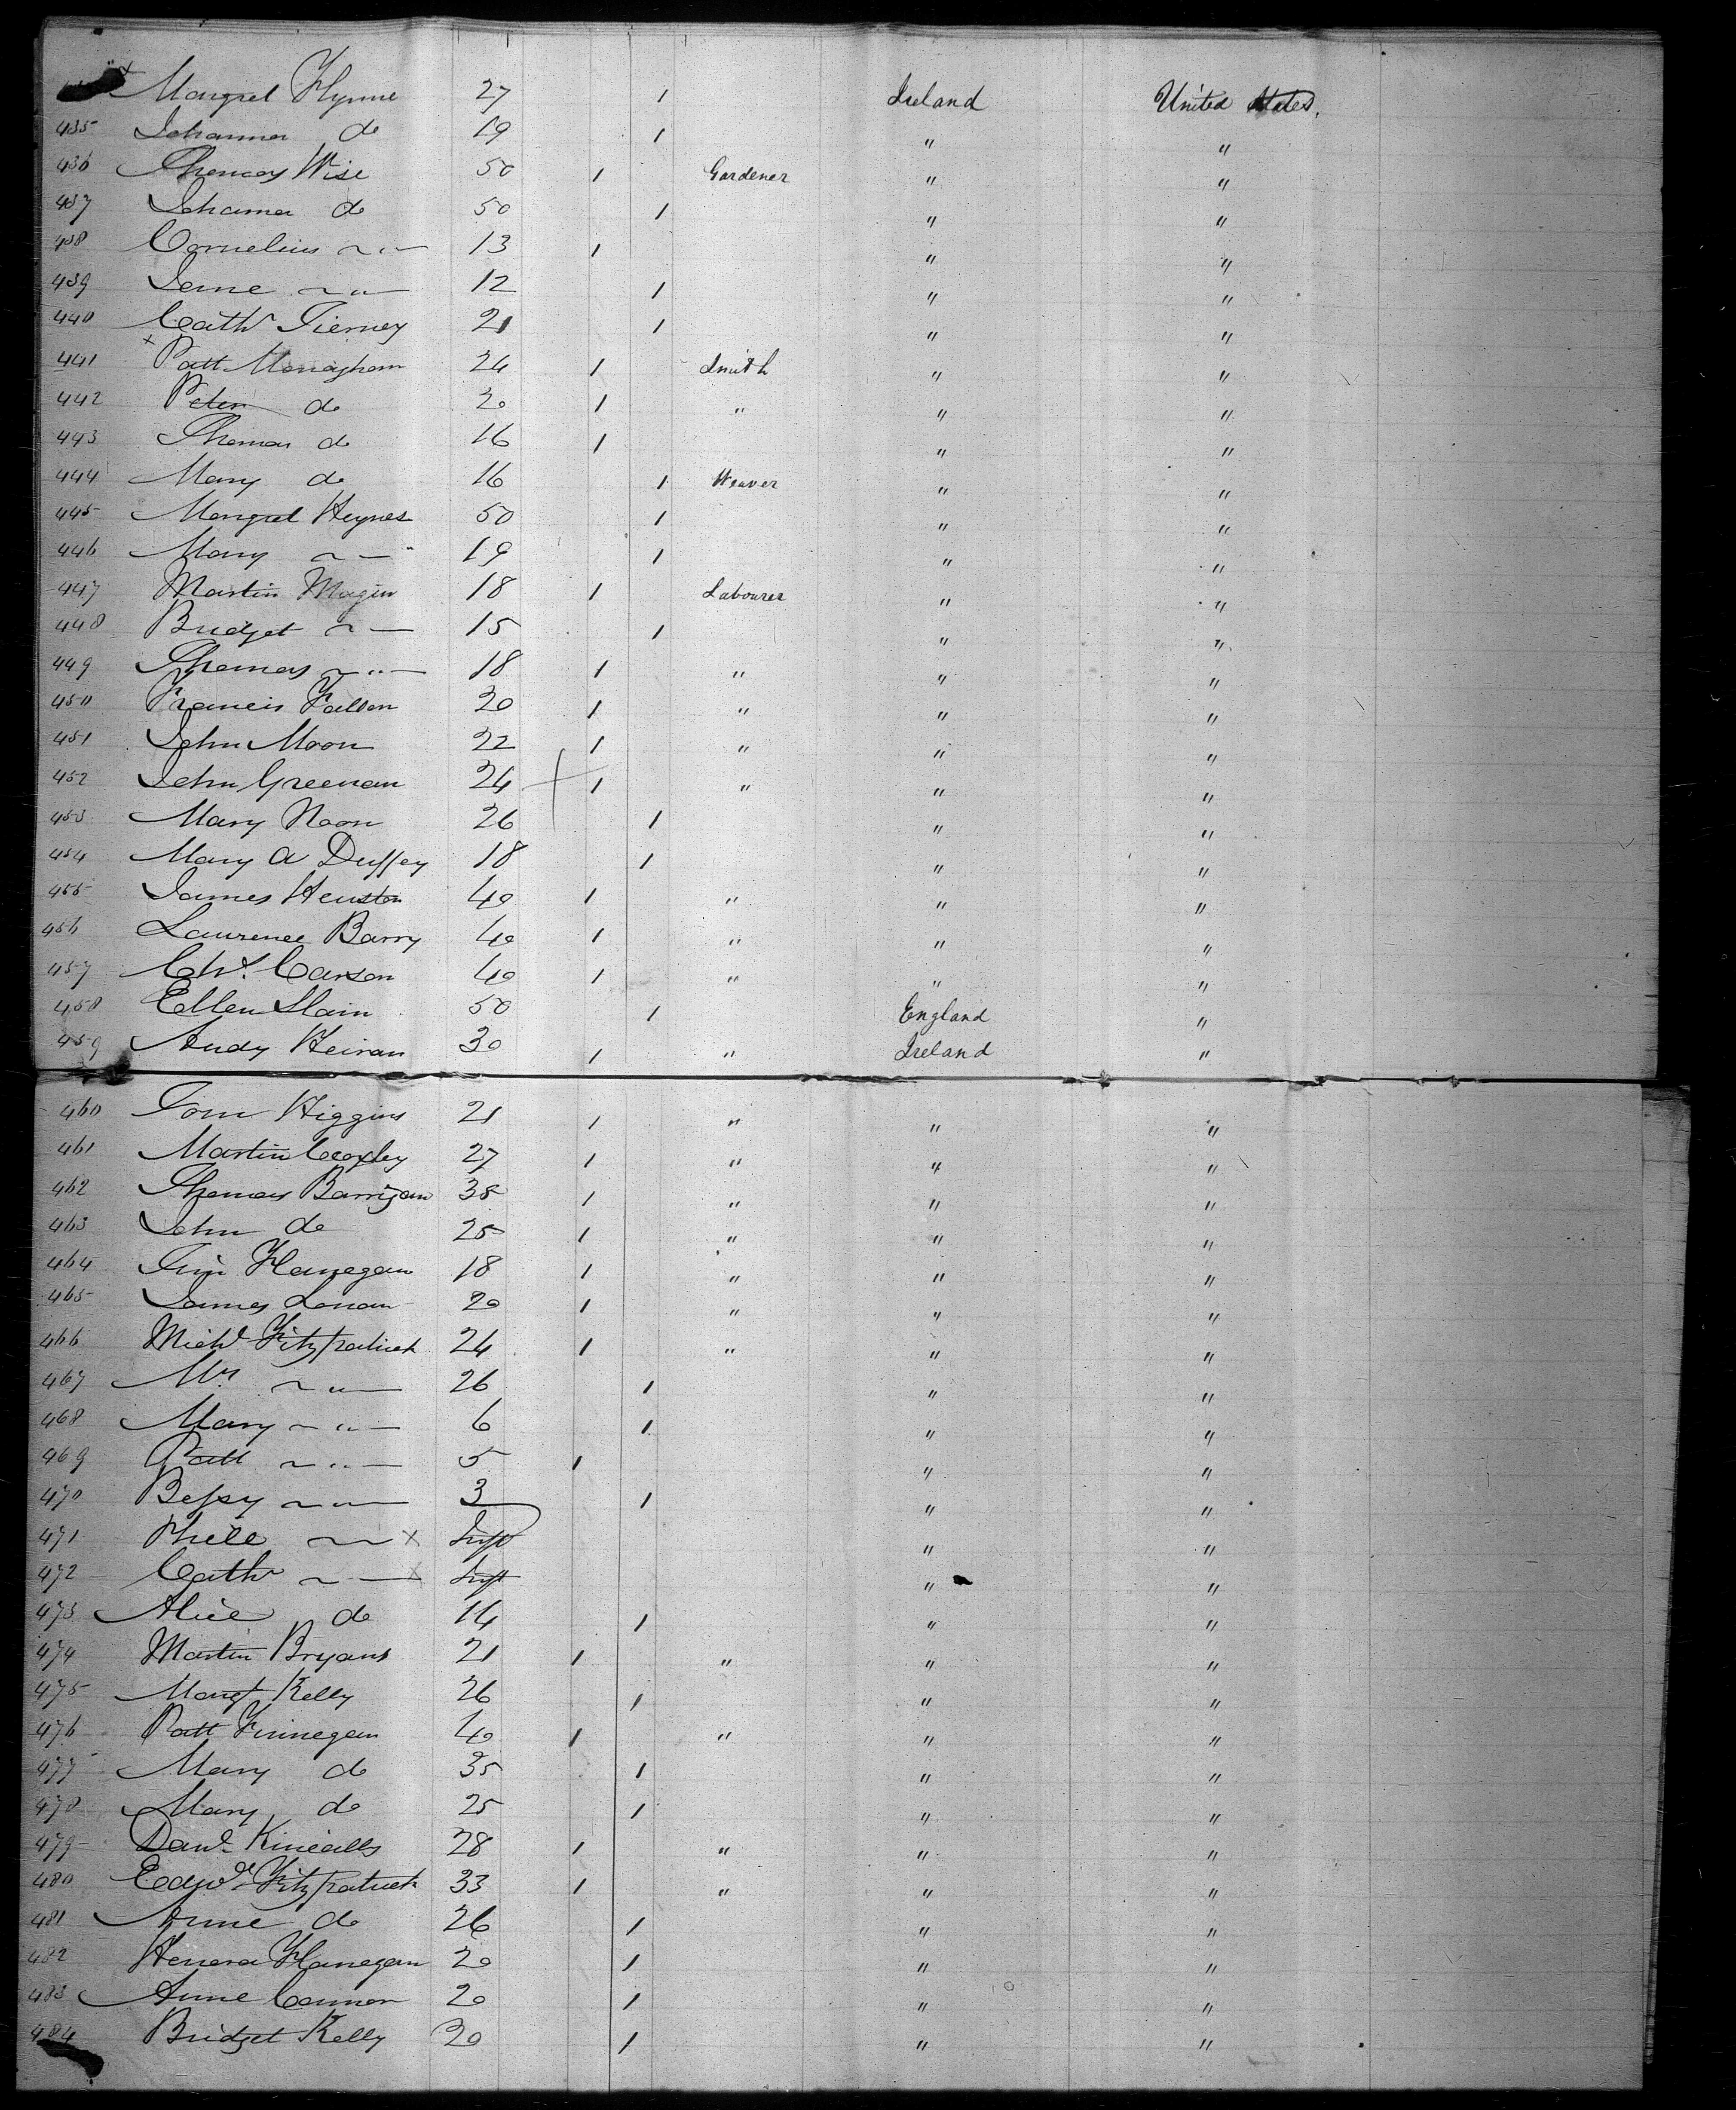 Margret Flynne 27 1 Ireland United States.
435 Johanna do 19 1 " "
436 Thomas Wise 50 1 Gardener " "
437 Johanna do 50 1 " "
438 Cornelius ~ " — 13 1 " "
439 Jane ~ " — 12 1 " "
440 Cathr Tierney 21 1 " "
441 x Patt Monaghan 24 1 Smith " "
442 Peter do 20 1 " " "
443 Thomas do 16 1 " "
444 Mary do 16 1 Weaver " "
445 Margret Heynes 50 1 " "
446 Mary ~ — " 19 1 " "
447 Martin Magin 18 1 Labourer " "
448 Bridget ~ — 15 1 " "
449 Thomas ~ " — 18 1 " " "
450 Francis Fallon 20 1 " " "
451 John Moon 22 1 " " "
452 John Greenan 24 1 " " "
453 Mary Noon 26 1 " "
454 Mary A Duffey 18 1 " "
455 James Heuston 40 1 " " "
456 Laurence Barry 40 1 " " "
457 Chs. Carson 40 1 " " "
458 Ellen Slain 50 1 England "
459 Andy Heiran 30 1 " Ireland "
460 Tom Higgins 21 1 " " "
461 Martin 27 1 " " "
462 Thomas Barrigan 38 1 " " "
463 John do 25 1 " " "
464 Tim Flanegan 18 1 " " "
465 James Lonan 20 1 " " "
466 Michl Fitzpatrick 24 1 " " "
467 Mrs ~ " — 26 1 " "
468 Mary ~ " — 6 1 " "
469 Patt ~ " — 5 1 " "
470 Bessy ~ " — 3 1 " "
471 Phill ~ ~ x Inft " "
472 Cathr ~ — x Inft " "
473 Alice do 14 1 " "
474 Martin Bryans 21 1 " " "
475 Margt Kelly 26 1 " "
476 Patt Finnegan 40 1 " " "
477 Mary do 35 1 " "
478 Mary do 25 1 " "
479 Danl Kinealls 28 1 " " "
480 Edwd Fitzpatrick 33 1 " " "
481 Anne do 26 1 " "
482 Henora Flanegan 20 1 " "
483 Anne Connor 20 1 " "
484 Bridget Kelly 20 1 " "